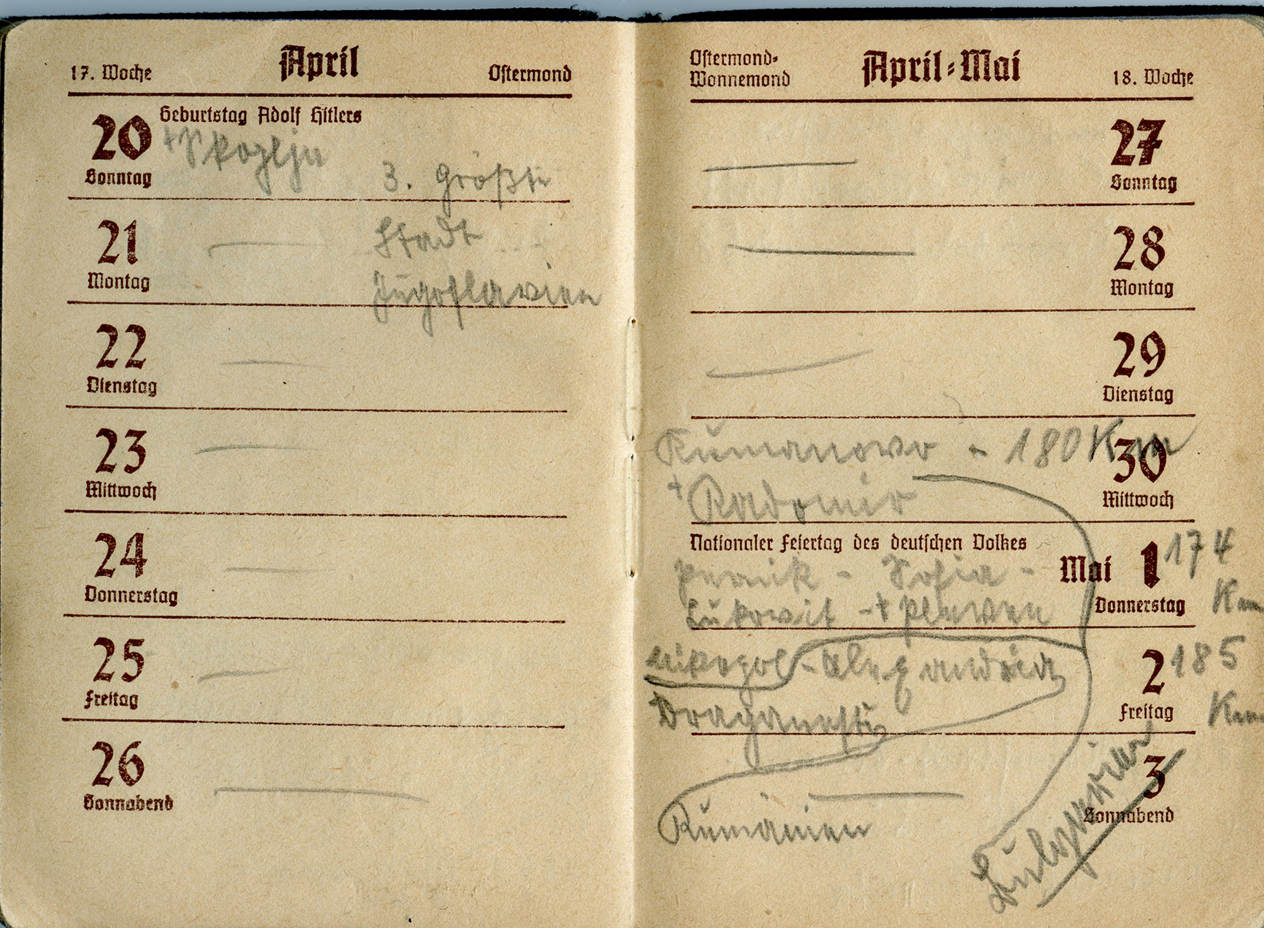 17. Woche April Ostermond
20 Geburtstag Adolf Hitlers
Sonntag
+ Skoplju 3. größte
21 Stadt
Montag
Jugoslavien
22
Dienstag
23
Mittwoch
24
Donnerstag
25
Freitag
26
Sonnabend
Ostermond-
Wonnemond April-Mai 18. Woche
27
Sonntag
28
Montag
29
Dienstag
Kumanovo - 180 Km
30
+ Radomir
Mittwoch
Nationaler Feiertag des deutschen Volkes
Pernik - Sofia - Mai 1 174
Lukovit - + Pleven Donnerstag Km
Nikopol - Alexandria 2 185
Draganesti Freitag Km
3
Sonnabend
Rumänien
Bulgarien